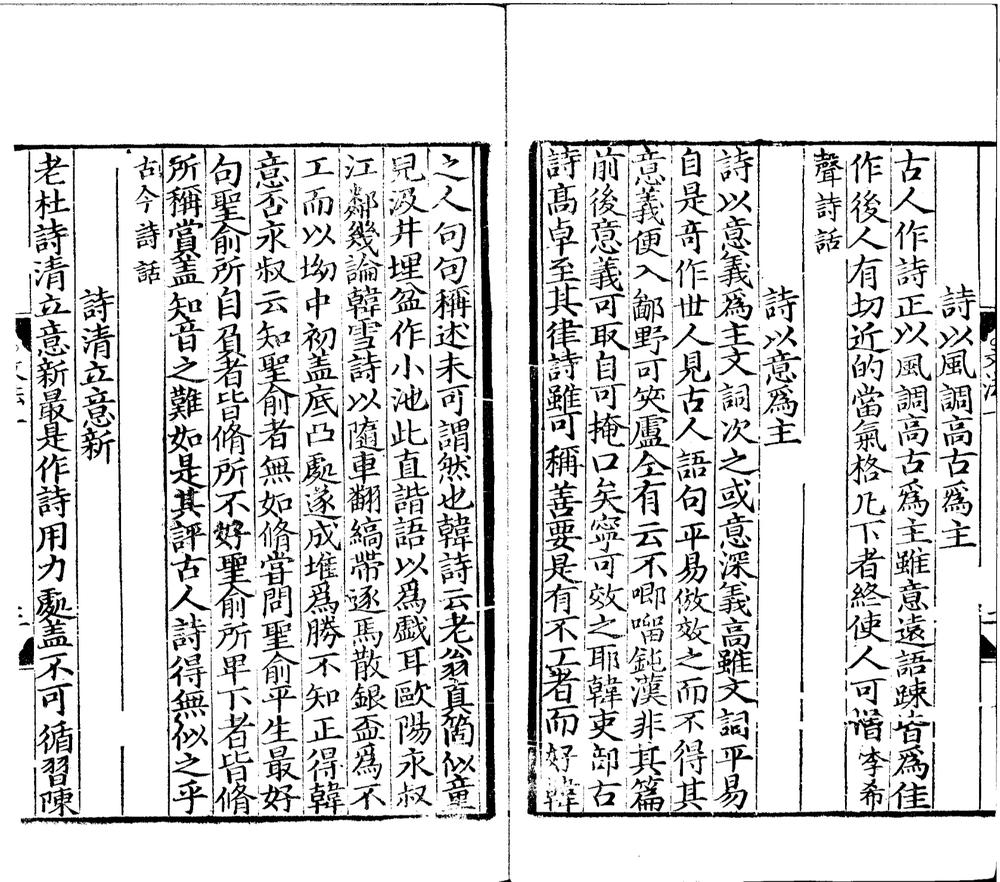 詩以風調高古為主
古人作詩正以風調高古爲主雖意遠語踈皆爲佳
作後人有切近的當氣格凡下者終使人可憎李希
聲詩話
詩以意為主
詩以意義爲主文詞次之或意深義高雖文詞平易
自是奇作世人見古人語句平易倣效之而不得其
意義便入鄙野可笑盧仝有云不唧𠺕鈍漢非其篇
前後意義可取自可掩口矣寧可效之耶韓吏部古
詩髙卓至其律詩雖可稱善要是有不工者而好韓
之人句句稱述未可謂然也韓詩云老翁真箇似童
兒汲井埋盆作小池此直諧語以爲戯耳歐陽永叔
江鄰幾論韓雪詩以隨車翻縞帶逐馬散銀盃爲不
工而以坳中初盖底凸處遂成堆爲勝不知正得韓
意否永叔云知聖俞者無如脩嘗問聖俞平生最好
句聖俞所自負者皆脩所不好聖俞所卑下者皆脩
所稱賞盖知音之難如是其評古人詩得無似之乎
古今詩話
詩清立意新
老杜詩清立意新最是作詩用力處盖不可循習陳